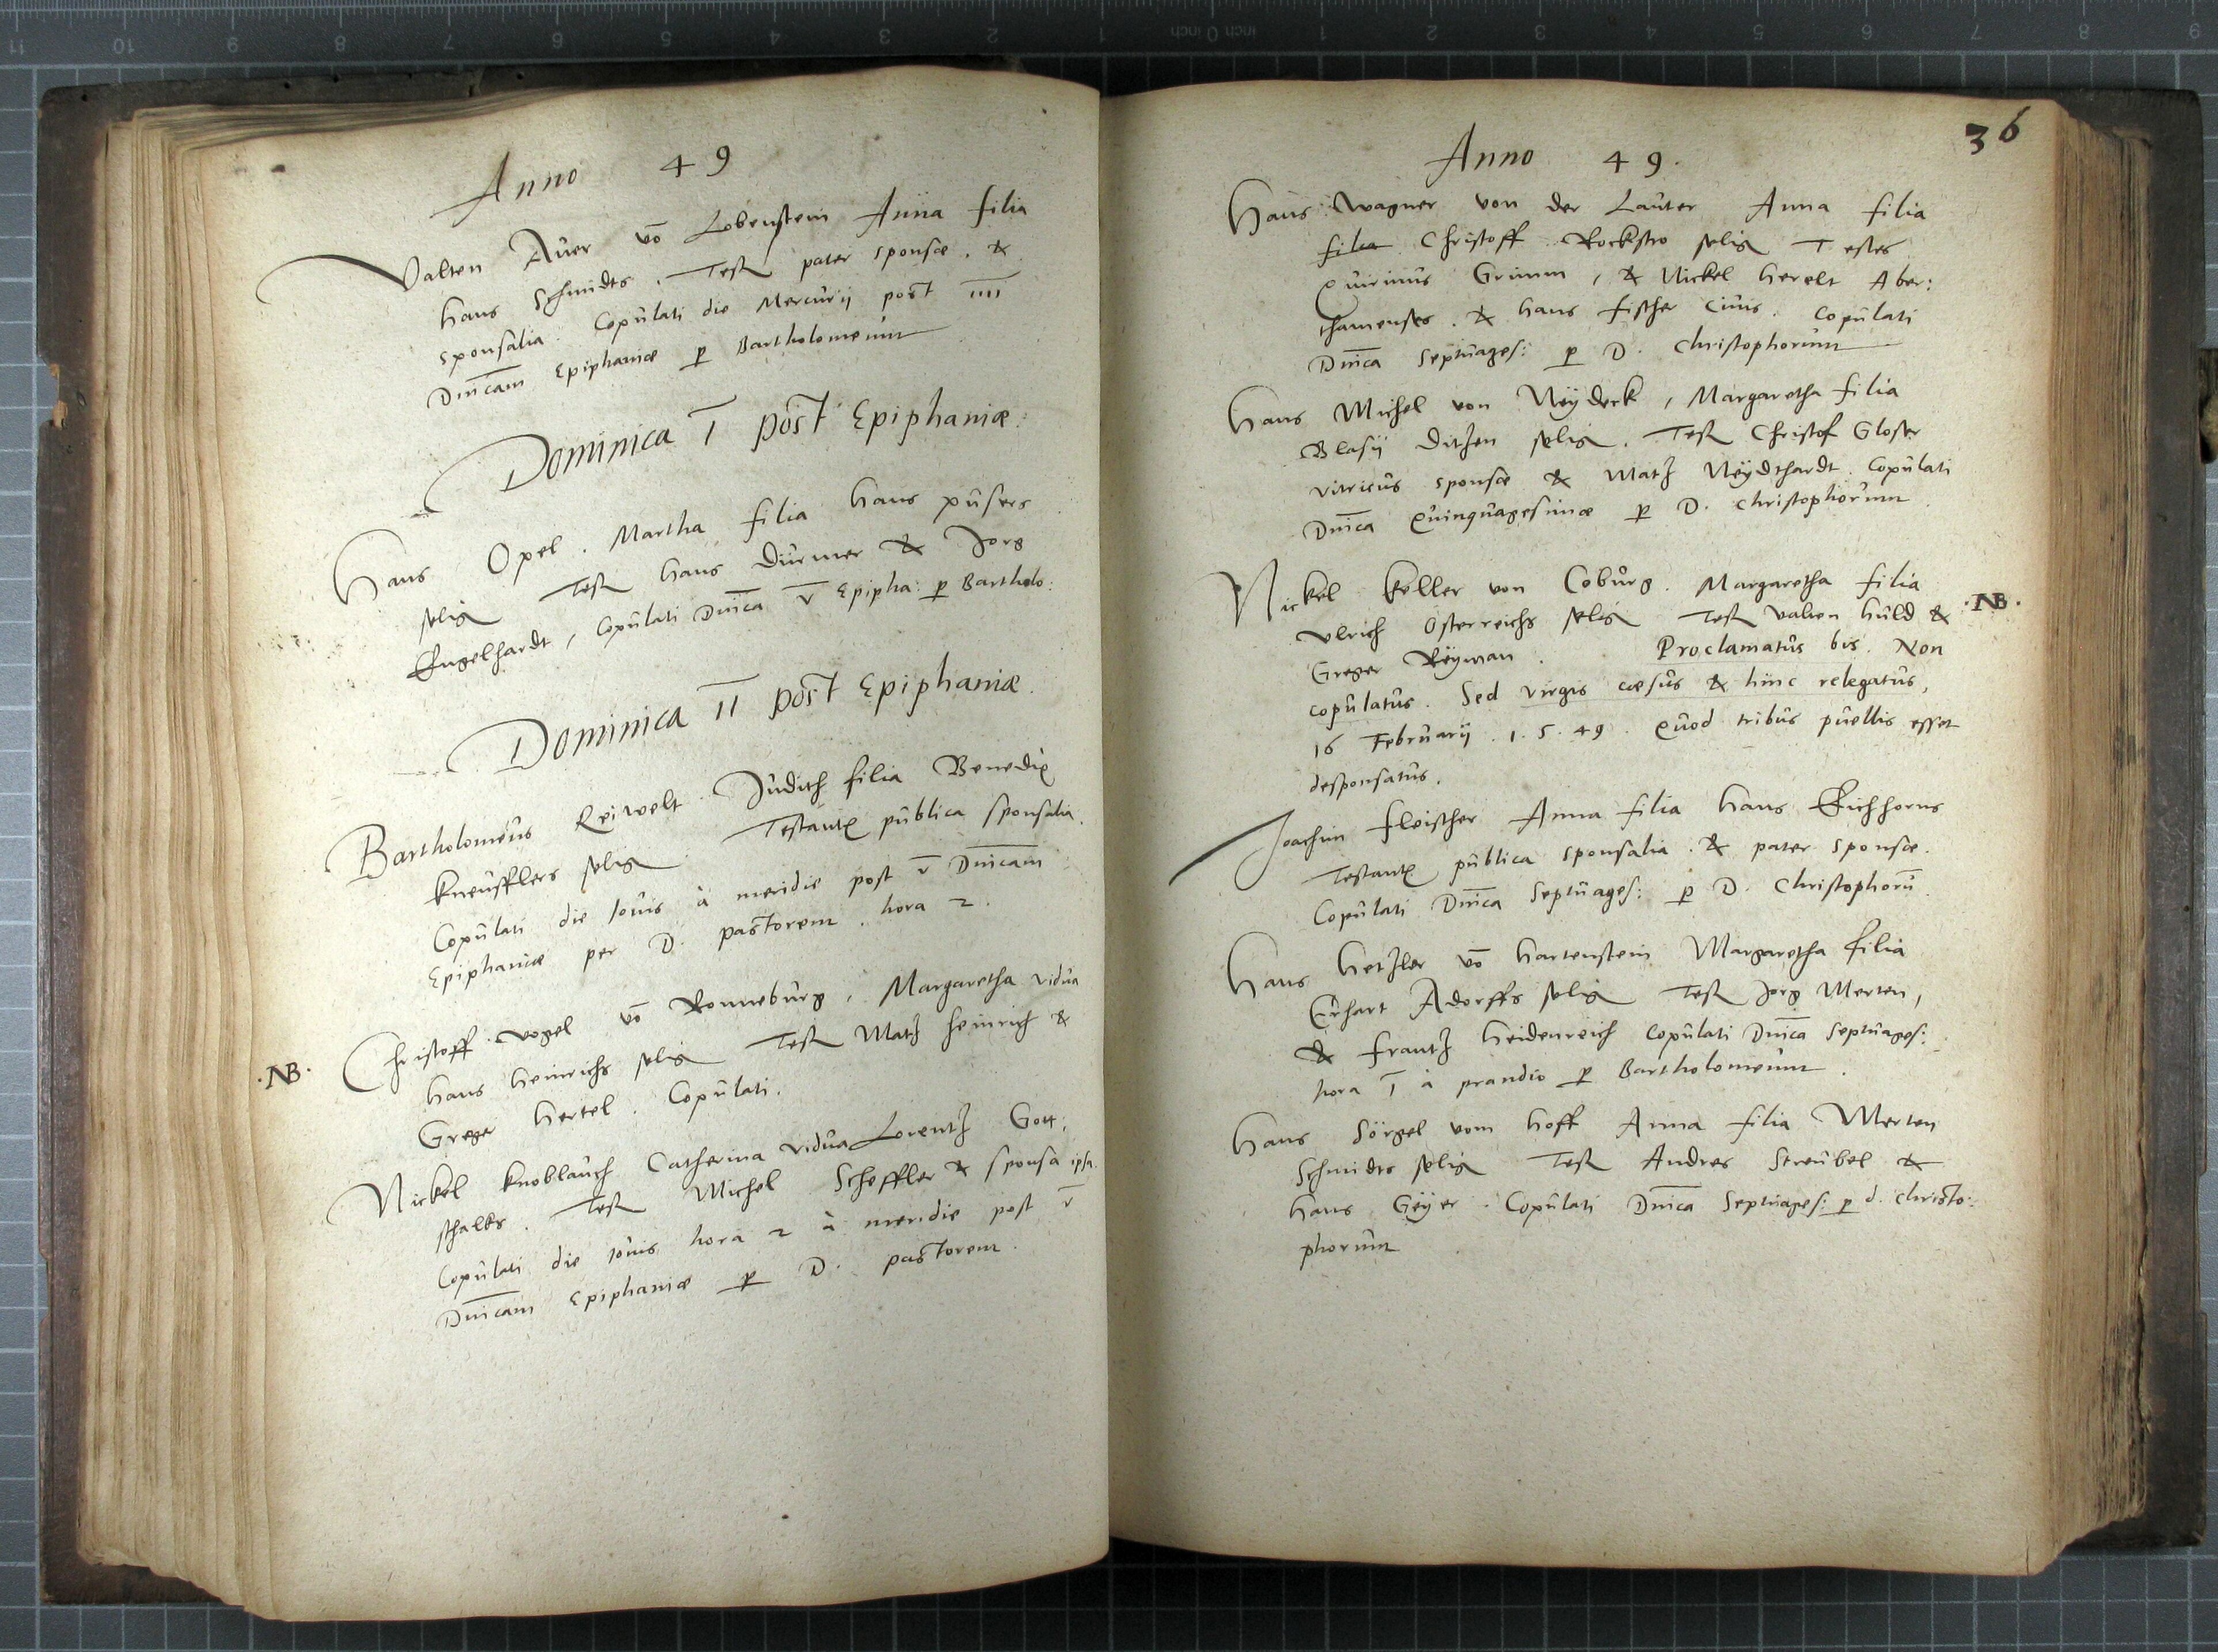 Anno 49
Valten Auer vō Lobenstein Anna filia
Hans Schmidts. Test pater sponsæ. &
sponsalia. Copulati die Mercurij post IIII
Dn̄icam Epiphaniæ p Bartholomeum
Dominica I post Epiphaniæ.
Hans Opel. Martha filia Hans püsers
selig Test Hans Dürner & Jorg
Engelhardt, Copulati Dn̄ica V Epipha: p Bartholo:
Dominica II post Epiphaniæ.
Bartholomeus Reiwelt. Judith filia Benedix
Kneufflers selig Testant publica sponsalia.
Copulati die Jouis à meridie post V Dn̄icam
Epiphaniæ per D. pastorem. hora 2.
.NB. Christoff vogel vō Ronneburg, Margaretha vidua
Hans Heinrichs selig Test Matz Heinrich &
Greger Hertel. Copulati.
Nickel Knoblauch Catherina vidua Lorentz Gott:
schalks. Test Michel Scheffler & sponsa ipsa.
Copulati die Jouis hora 2 à meridie post V
Dn̄icam Epiphaniæ p D. pastorem.
36
Anno 49.
Hans Wagner von der Lauter Anna filia
filia Christoff Rockstro selig Testes
Quirinus Grimm, & Nickel Herolt Aber:
thamenses. & Hans Fischer Ciuis. Copulati
Dn̄ica Septuages: p D. Christophorum
Hans Michel von Neydeck, Margaretha filia
Blasij Ditzen selig. Test Christof Gloser
vitricus sponsæ & Matz Neydthardt. Copulati
Dn̄ica Quinquagesimæ p D. Christophorum
Nickel Keller von Coburg. Margaretha filia
Vlrich Osterreichs selig Test Valten Huld & .NB.
Greger Reyman. Proclamatus bis. Non
copulatus. Sed virgis cæsus & hinc relegatus,
16 Februarij. 1.5.49. Quod tribus puellis esset
desponsatus.
Joachim Fleischer Anna filia Hans Eichhorns
Testant publica sponsalia. & pater sponsæ.
Copulati Dn̄ica Septuages: p D. Christophorū
Hans Hetzler vō Hartenstein Margaretha filia
Erhart Adorffs selig Test Jorg Merten,
& Frantz Heidenreich Copulati Dn̄ica Septuages:
hora I à prandio p Bartholomeum.
Hans Sörgel vom Hoff Anna filia Merten
Schmidts selig Test Andres Streubel &
Hans Geyer. Copulati Dn̄ica Septuages: p d. Christo:
phorum